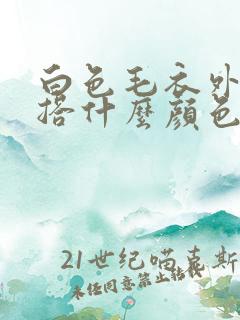 白色毛衣外
搭什麼顏色
21世纪喵喜斯
未经同意禁止转载